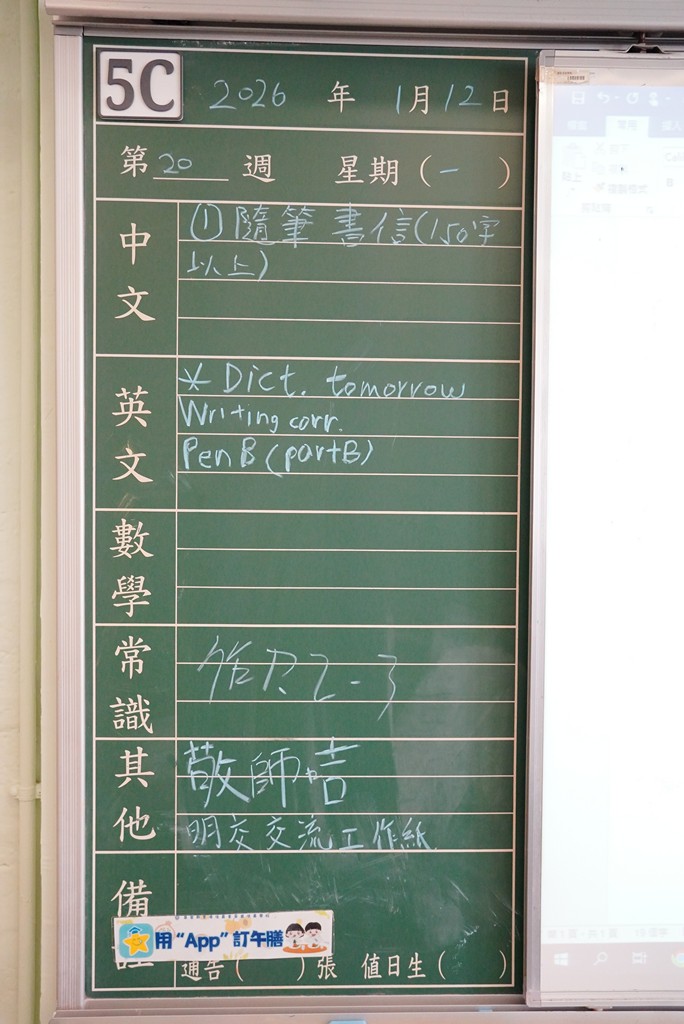 5C 2026 年 1月12日
第 20 週 星期(一)
中文
① 隨筆 書信(150字
以上)
英文
* Dict. tomorrow
Writing corr.
Pen B (part B)
數學
常識
2-3
其他
敬師
明交交流工作紙
備
用 “App” 訂午膳
通告( )張 值日生( )